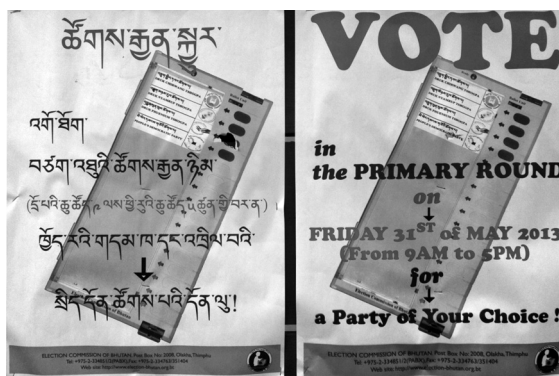 ཚོགས་རྒྱན་སྐྱུར་
འགོ་ཐོག་
བཙག་འཐུའི་ཚོགས་རྒྱན་ཉིམ་
(དྲོ་པའི་ཆུ་ཚོད་༩ ལས་ཕྱི་རུའི་ཆུ་ཚོད་༥ ཚུན་གྱི་བར་ན་) །
ཁྱོད་རའི་གདམ་ཁ་དང་འཁྲིལ་བའི་
སྲིད་དོན་ཚོགས་པའི་དོན་ལུ་!
ELECTION COMMISSION OF BHUTAN Post Box No: 2008, Olakha, Thimphu
Web site http://www.election-bhutan.org.bt
VOTE
in
the PRIMARY ROUND
on
FRIDAY 31ST of MAY 2013
(From 9AM to 5PM)
for
a Party of Your Choice !
ELECTION COMMISSION OF BHUTAN Post Box No: 2008, Olakha, Thimphu
Web site http://www.election-bhutan.org.bt